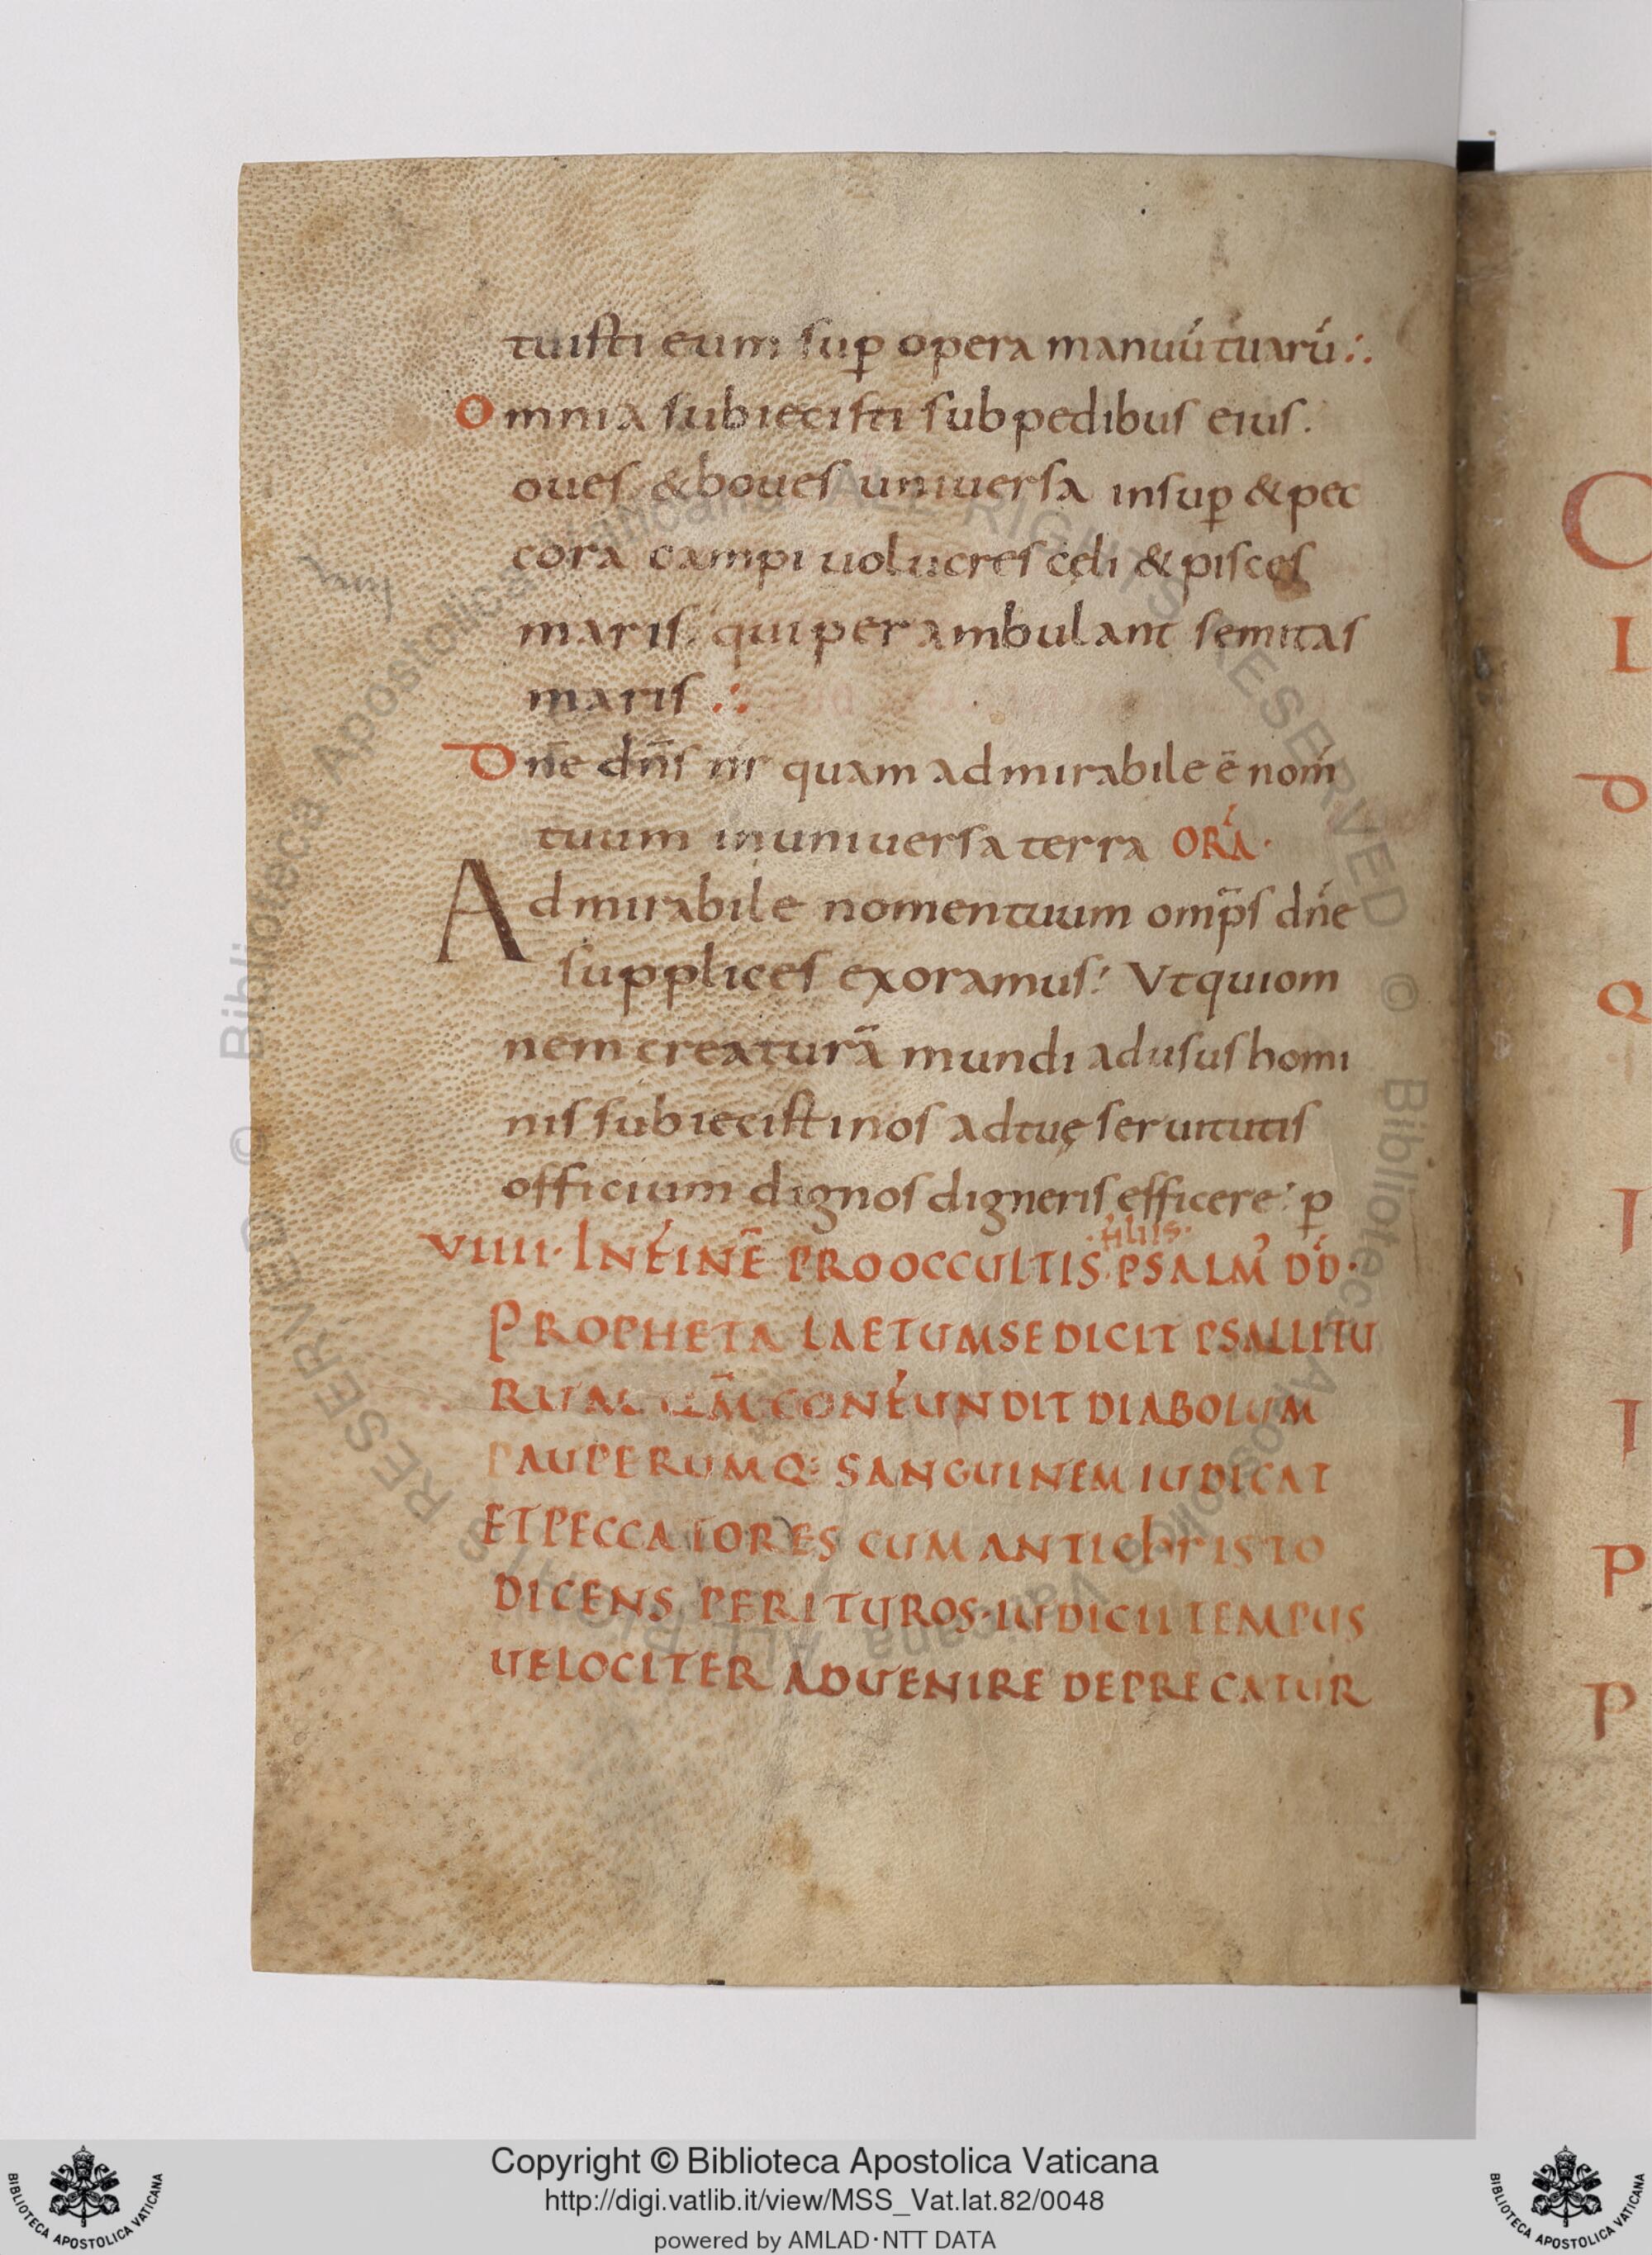 tuisti eum sup̄ opera manuū tuarū :.
Omnia subiecisti sub pedibus eius.
oues & boues uniuersa insup̄ & pec
cora campi uolucres cęli & pisces
maris. qui perambulant semitas
maris :.
Dn̄e dn̄s nr̄ quam admirabile ē nom̄
tuum in uniuersa terra ORA·
Admirabile nomen tuum omp̄s dn̄e
supplices exoramus: Ut qui om
nem creaturā mundi ad usus homi
nis subiecisti nos ad tuę seruitutis
officium dignos digneris efficere· p̄
·filiis·
VIIII· IN FINĒ PRO OCCULTIS. PSALM̄ DD̄·
PROPHETA LAETUM SE DICIT PSALLITU
RUM CONFUNDIT DIABOLUM
PAUPERUMQ: SANGUINEM IUDICAT
ET PECCATORES CUM ANTICHRISTO
DICENS PERITUROS· IUDICII TEMPUS
UELOCITER ADUENIRE DEPRECATUR
C
L
D
Q
I
I
P
P
© Biblioteca Apostolica Vaticana ALL RIGHTS RESERVED © Biblioteca Apostolica Vaticana ALL RIGHTS RESERVED
Copyright © Biblioteca Apostolica Vaticana
http://digi.vatlib.it/view/MSS_Vat.lat.82/0048
powered by AMLAD·NTT DATA
BIBLIOTECA APOSTOLICA VATICANA
BIBLIOTECA APOSTOLICA VATICANA